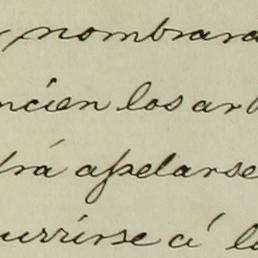 nombrara
ncien los ar
rá apelarse
urrirse á l